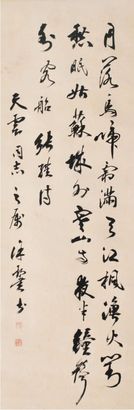 月落烏啼霜滿天江枫渔火對
愁眠姑蘇城外寒山寺夜半鐘聲
到客船 張继诗
天雲同志之屬